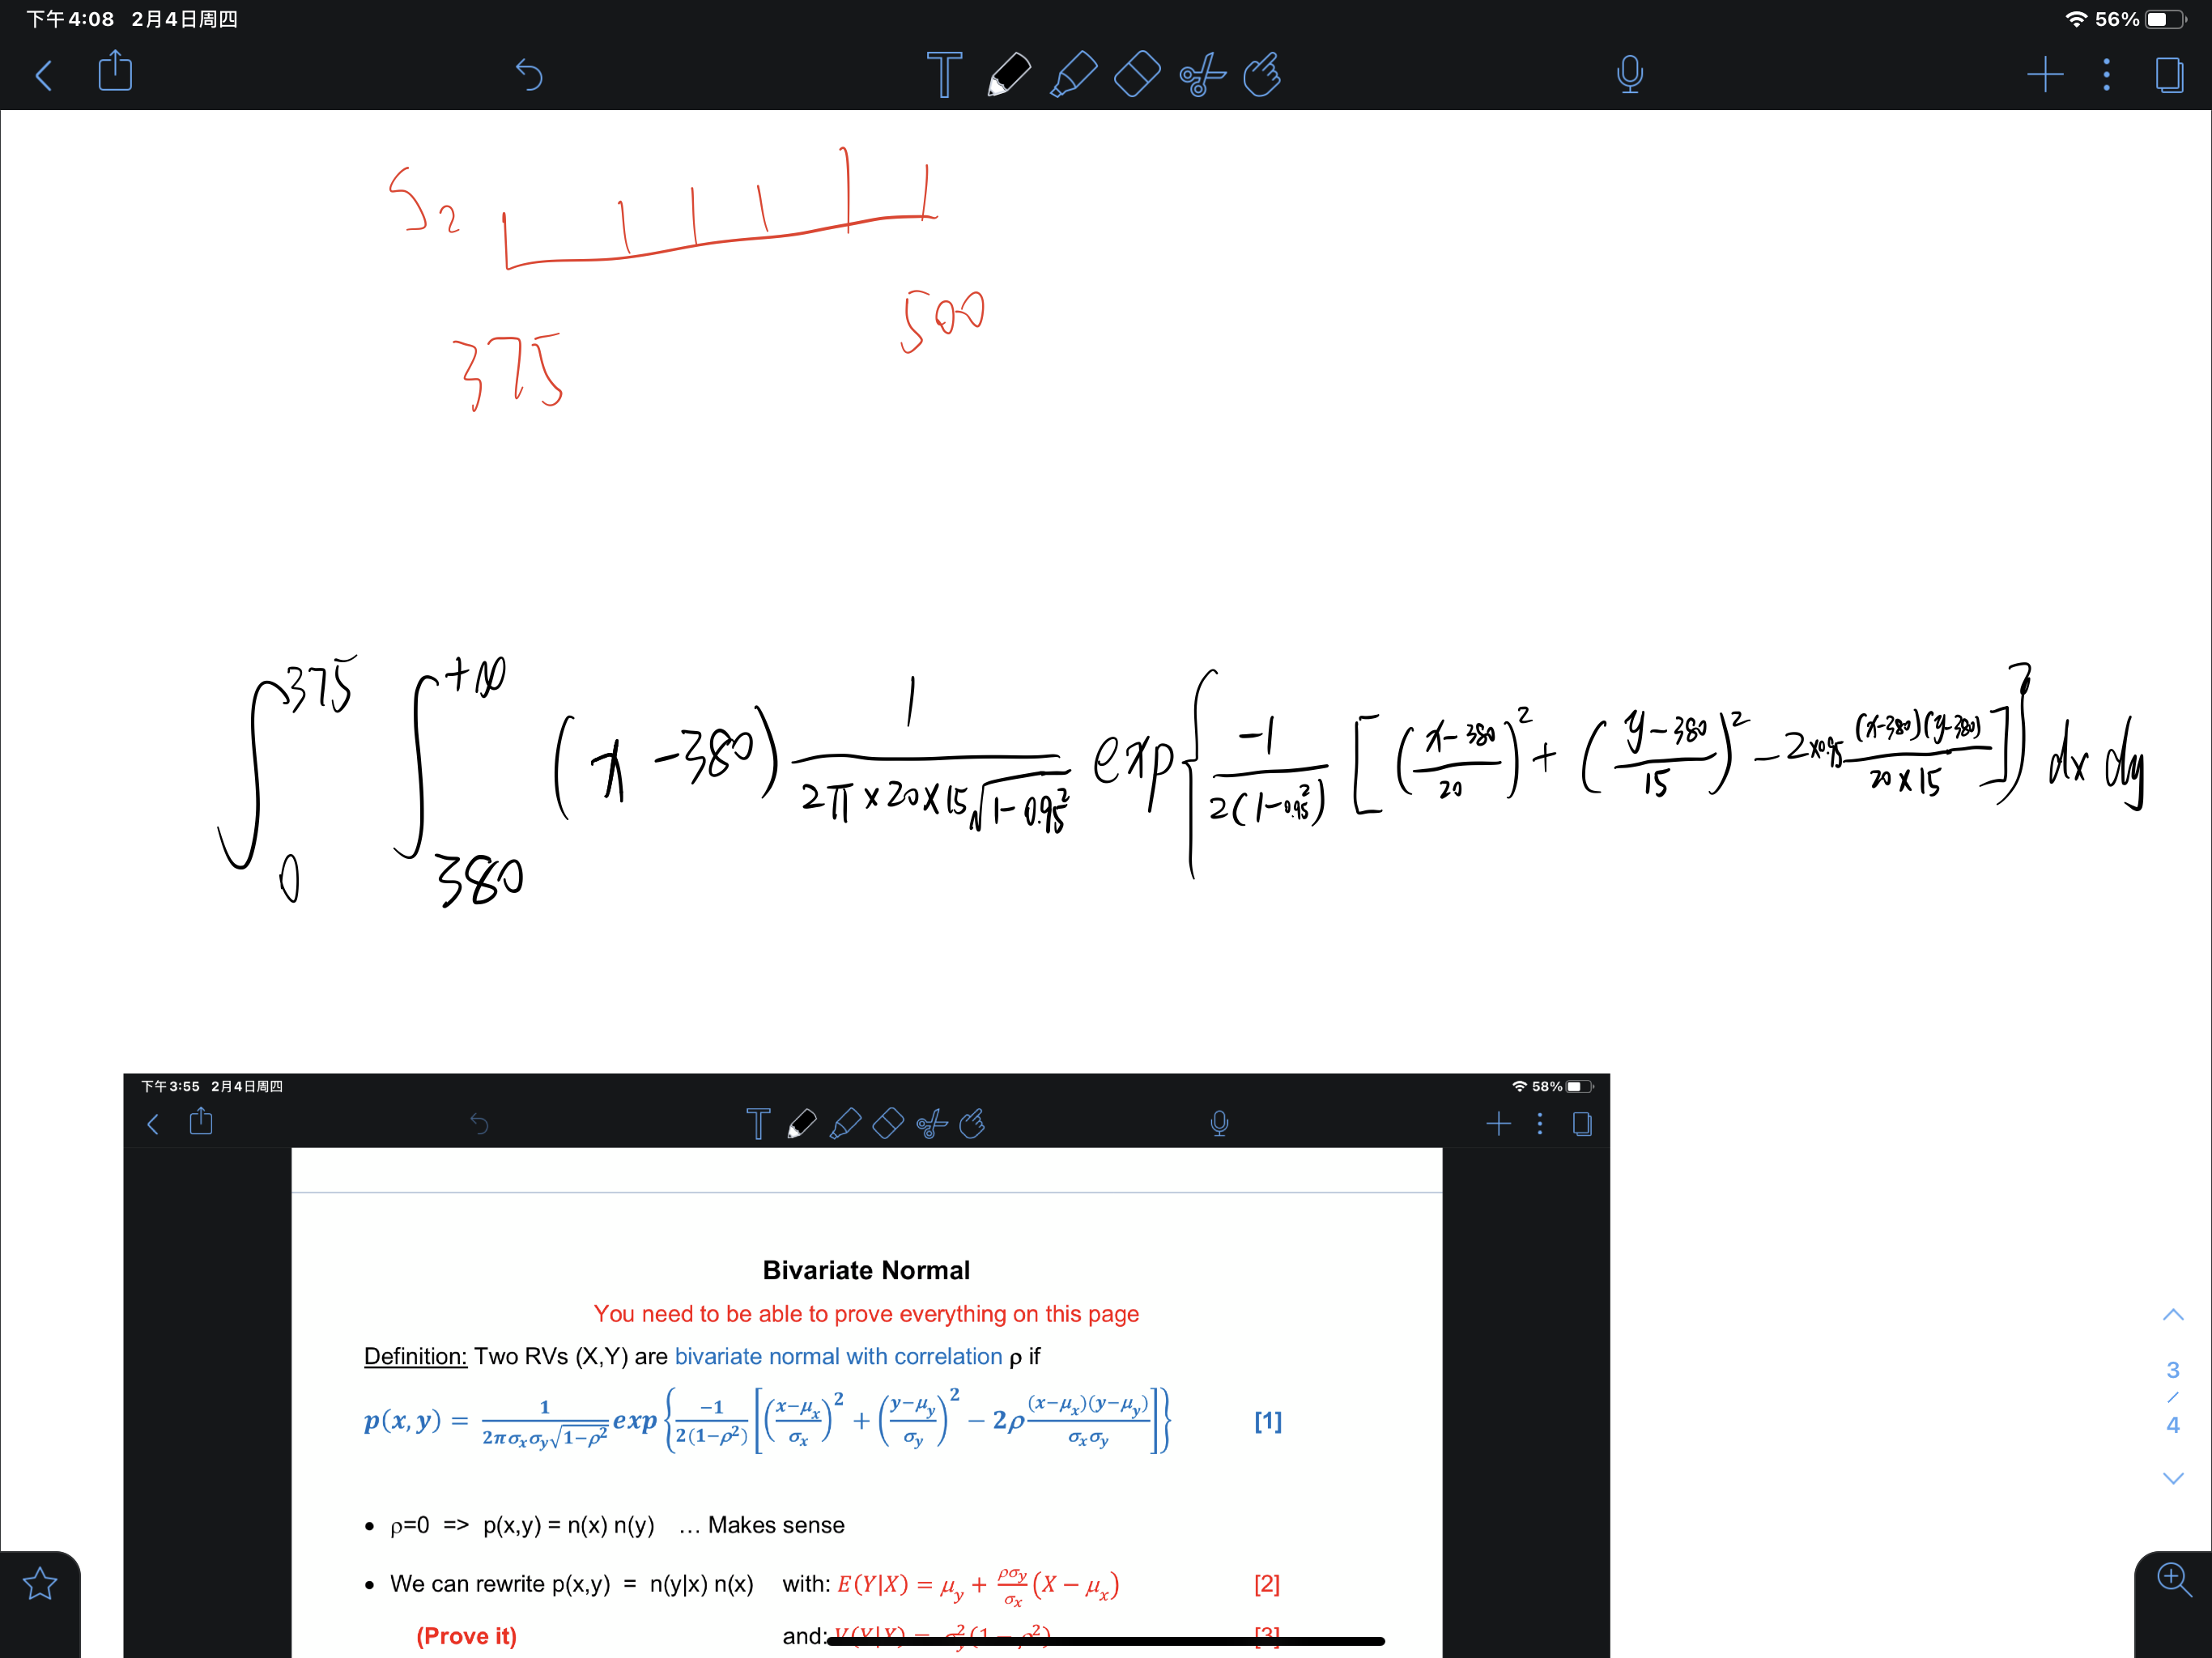 下午4:08 2月4日周四 56%
S₂
375 500
∫₀³⁷⁵ ∫₃₈₀⁺∞ (x-380) 1/(2π×20×15√(1-0.95²)) exp{-1/(2(1-0.95²)) [((x-380)/20)² + ((y-380)/15)² - 2×0.95 (x-380)(y-380)/(20×15)]} dx dy
下午3:55 2月4日周四 58%
Bivariate Normal
You need to be able to prove everything on this page
Definition: Two RVs (X,Y) are bivariate normal with correlation ρ if
p(x,y) = 1/(2πσₓσᵧ√(1-ρ²)) exp{-1/(2(1-ρ²)) [((x-μₓ)/σₓ)² + ((y-μᵧ)/σᵧ)² - 2ρ (x-μₓ)(y-μᵧ)/(σₓσᵧ)]} [1]
• ρ=0 => p(x,y) = n(x) n(y) ... Makes sense
• We can rewrite p(x,y) = n(y|x) n(x) with: E(Y|X) = μᵧ + ρσᵧ/σₓ (X - μₓ) [2]
(Prove it) and: V(Y|X) = σᵧ²(1 - ρ²) [3]
3
/
4